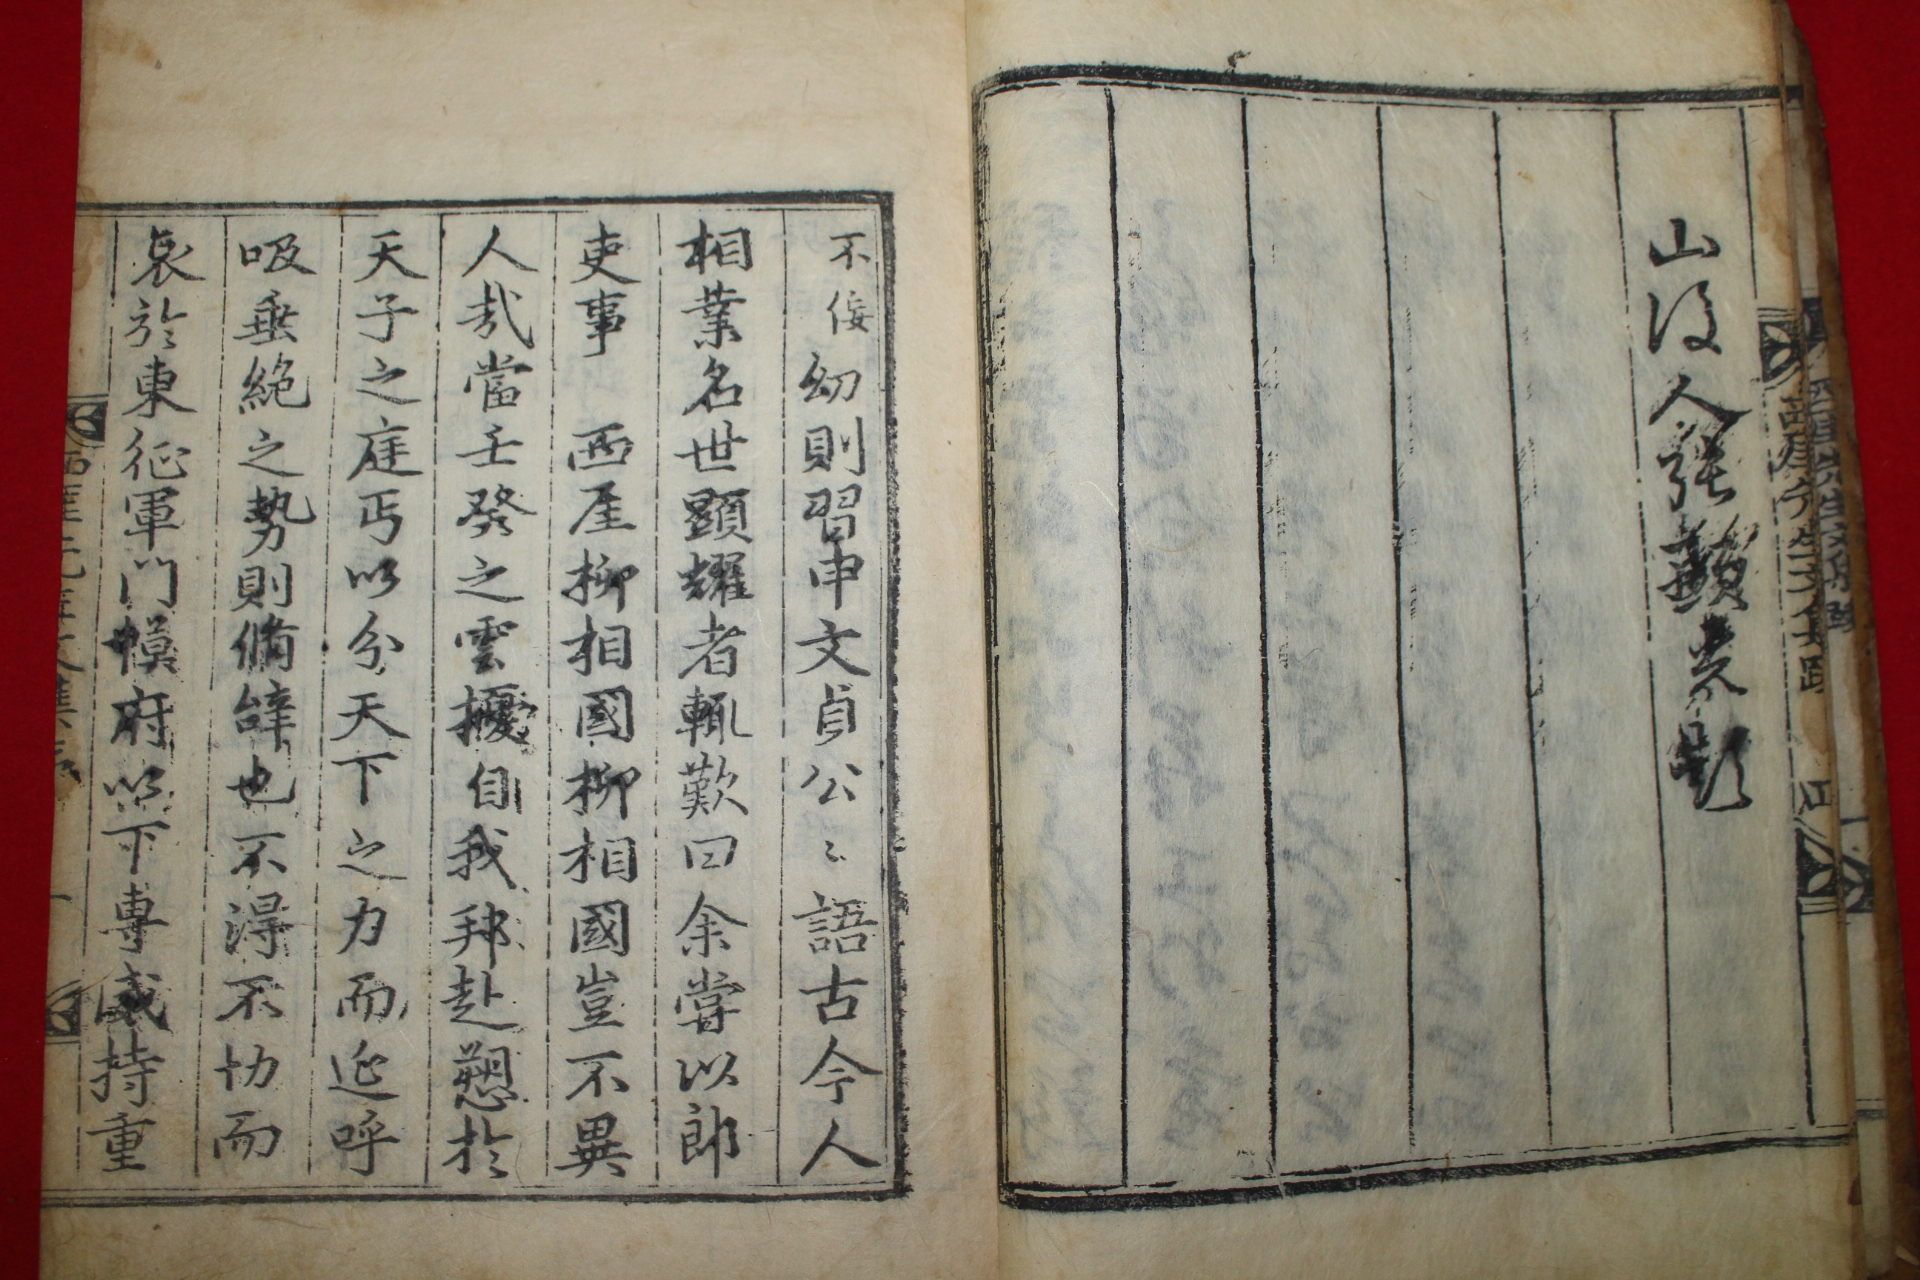 山後人張顯光題
西厓先生文集跋
不佞幼則習申文貞公〻語古今人
相業名世顯耀者輒歎曰余嘗以郎
吏事　西厓柳相國柳相國豈不異
人哉當壬癸之雲擾自我邦赴愬於
天子之庭丐以分天下之力而延呼
吸垂絶之勢則脩辭也不得不切而
哀於東征軍門幙府以下專威持重